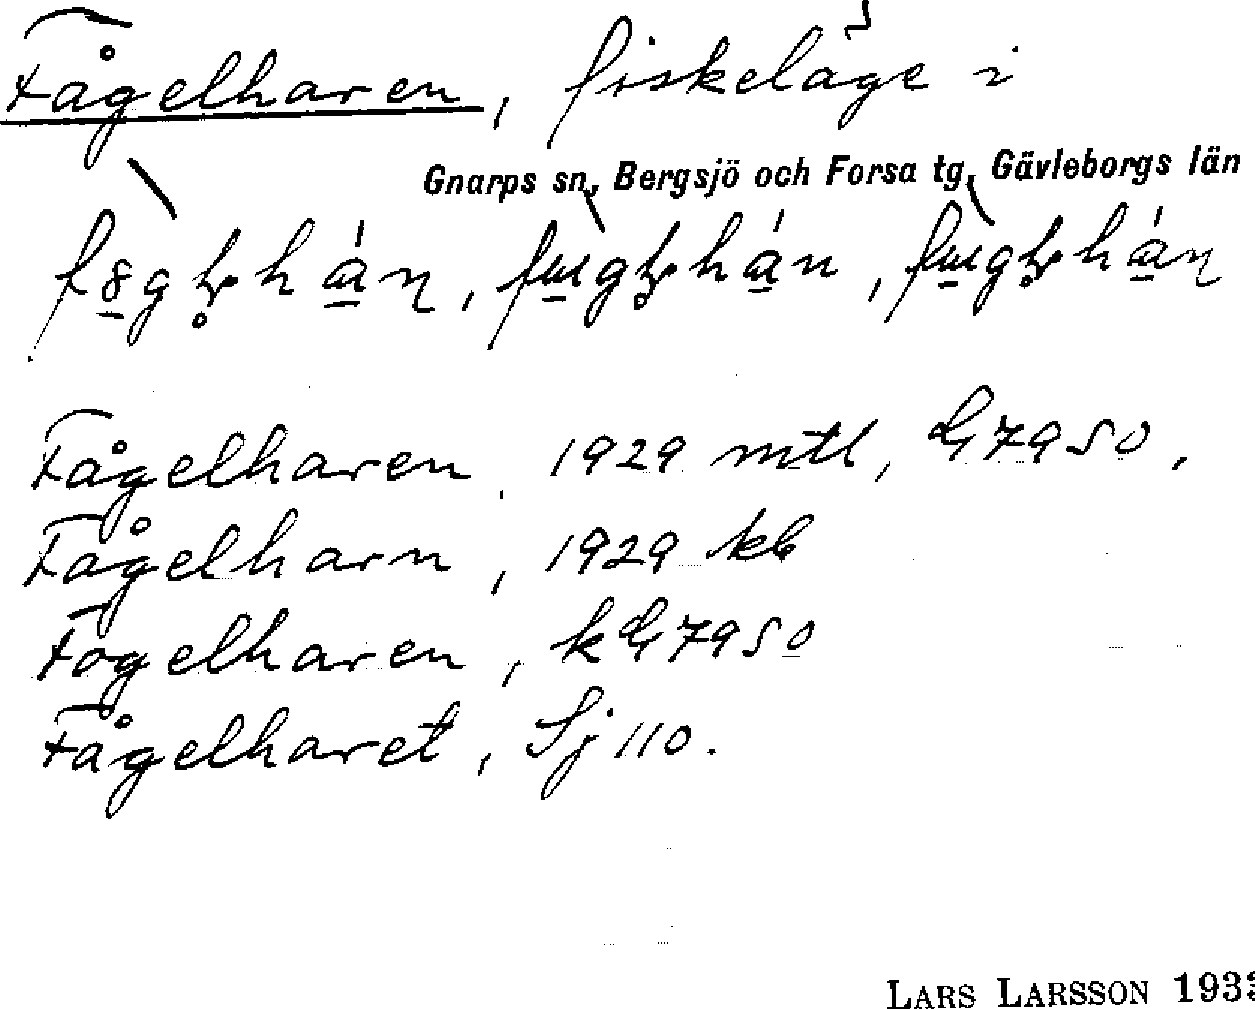 Fågelharen, fiskeläge i
Gnarps sn, Bergsjö och Forsa tg, Gävleborgs län
Fågelharen, 1929 mtl, G7950,
Fågelharn, 1929 kb
Fogelharen, kG7950
Fågelharet, Sj 110.
LARS LARSSON